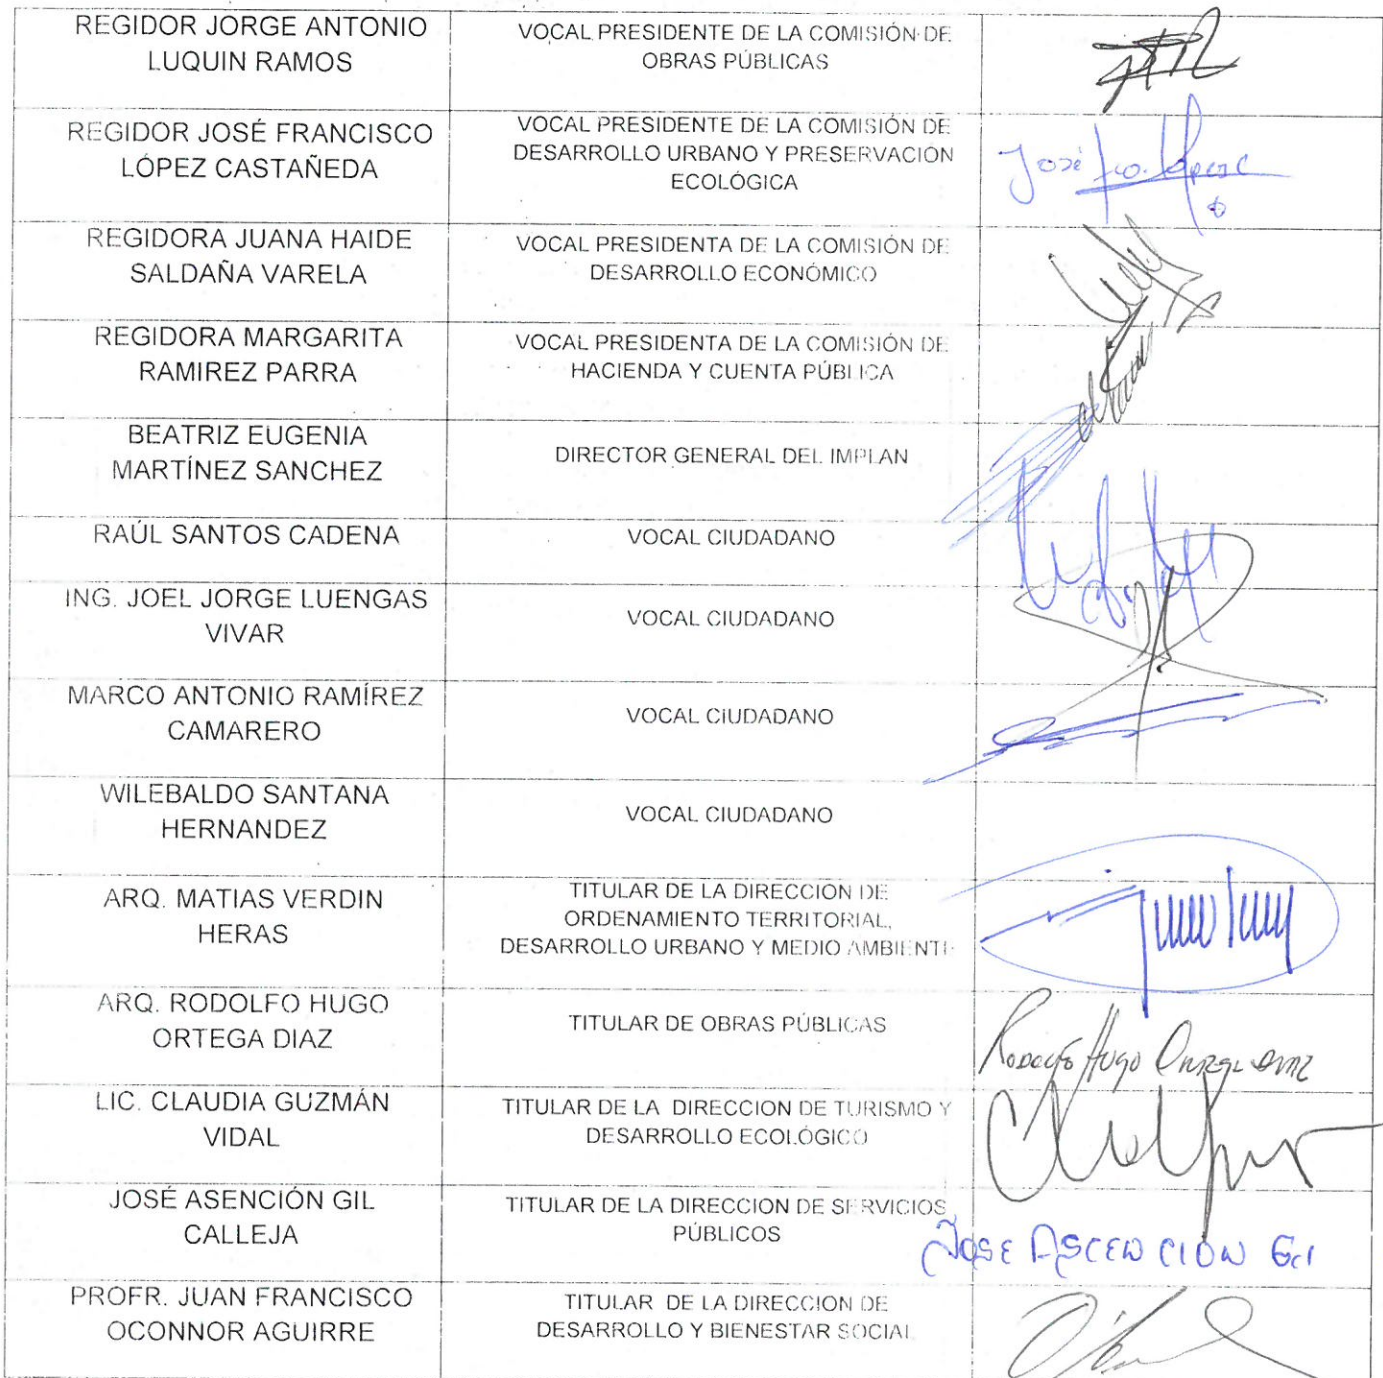 REGIDOR JORGE ANTONIO
LUQUIN RAMOS
VOCAL PRESIDENTE DE LA COMISIÓN DE
OBRAS PÚBLICAS
REGIDOR JOSÉ FRANCISCO
LÓPEZ CASTAÑEDA
VOCAL PRESIDENTE DE LA COMISIÓN DE
DESARROLLO URBANO Y PRESERVACIÓN
ECOLÓGICA
José Fco. López C
REGIDORA JUANA HAIDE
SALDAÑA VARELA
VOCAL PRESIDENTA DE LA COMISIÓN DE
DESARROLLO ECONÓMICO
REGIDORA MARGARITA
RAMIREZ PARRA
VOCAL PRESIDENTA DE LA COMISIÓN DE
HACIENDA Y CUENTA PÚBLICA
BEATRIZ EUGENIA
MARTÍNEZ SANCHEZ
DIRECTOR GENERAL DEL IMPLAN
RAÚL SANTOS CADENA
VOCAL CIUDADANO
ING. JOEL JORGE LUENGAS
VIVAR
VOCAL CIUDADANO
MARCO ANTONIO RAMÍREZ
CAMARERO
VOCAL CIUDADANO
WILEBALDO SANTANA
HERNANDEZ
VOCAL CIUDADANO
ARQ. MATIAS VERDIN
HERAS
TITULAR DE LA DIRECCION DE
ORDENAMIENTO TERRITORIAL,
DESARROLLO URBANO Y MEDIO AMBIENTE
ARQ. RODOLFO HUGO
ORTEGA DIAZ
TITULAR DE OBRAS PÚBLICAS
Rodolfo Hugo Ortega Diaz
LIC. CLAUDIA GUZMÁN
VIDAL
TITULAR DE LA DIRECCION DE TURISMO Y
DESARROLLO ECOLÓGICO
JOSÉ ASENCIÓN GIL
CALLEJA
TITULAR DE LA DIRECCION DE SERVICIOS
PÚBLICOS
JOSE ASCENCION Gil
PROFR. JUAN FRANCISCO
OCONNOR AGUIRRE
TITULAR DE LA DIRECCION DE
DESARROLLO Y BIENESTAR SOCIAL